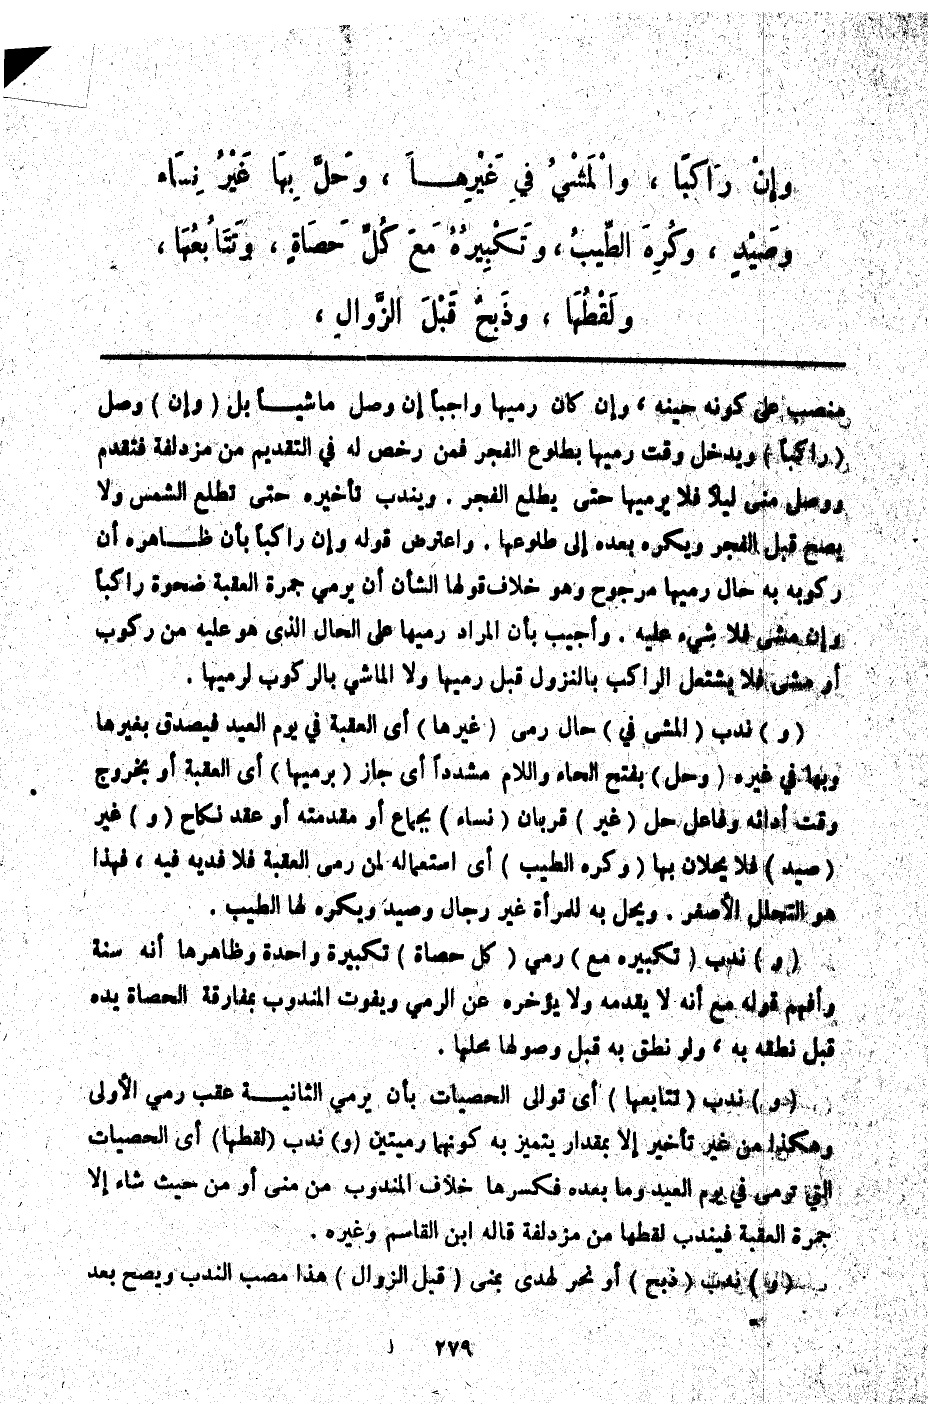 وإنْ رَاكبًا ، والْمَشْيُ في غَيْرِهـا ، وحَلَّ بِهَا غَيْرُ نِسَاء
وصَيْدٍ ، وكُرِهَ الطِّيبُ ، وتَكْبِيرُهُ مَعَ كُلِّ حَصَاةٍ ، وتَتَابُعُهَا ،
ولَقْطُهَا ، وذَبحٌ قَبْلَ الزَّوالِ ،
منصب على كونه حينه ، وإن كان رميها واجباً إن وصل ماشيـاً بل ( وإن ) وصل
( راكباً ) ويدخل وقت رميها بطلوع الفجر فمن رخص له في التقديم من مزدلفة فتقدم
ووصل منى ليلا فلا يرميها حتى يطلع الفجر . ويندب تأخيره حتى تطلع الشمس ولا
يصح قبل الفجر ويكره بعده إلى طلوعها . واعترض قوله وإن راكباً بأن ظـاهره أن
ركوبه به حال رميها مرجوح وهو خلاف قولها الشأن أن يرمي جمرة العقبة ضحوة راكباً
وإن مشى فلا شيء عليه . وأجيب بأن المراد رميها على الحال الذى هو عليه من ركوب
أو مشى فلا يشتعل الراكب بالنزول قبل رميها ولا الماشي بالركوب لرميها .
( و ) ندب ( المشى في ) حال رمى ( غيرها ) أى العقبة في يوم العيد فيصدق بغيرها
وبها في غيره ( وحل ) بفتح الحاء واللام مشدداً أى جاز ( برميها ) أى العقبة أو بخروج
وقت أدائه وفاعل حل ( غير ) قربان ( نساء ) بجماع أو مقدمته أو عقد نكاح ( و ) غير
( صيد ) فلا يحلان بها ( وكره الطيب ) أى استعماله لمن رمى العقبة فلا فديه فيه ، فهذا
هو التحلل الأصغر . ويحل به للمرأة غير رجال وصيد ويكره لها الطيب .
( و ) ندب ( تكبيره مع ) رمي ( كل حصاة ) تكبيرة واحدة وظاهرها أنه سنة
وأفهم قوله مع أنه لا يقدمه ولا يؤخره عن الرمي ويفوت المندوب بمفارقة الحصاة يده
قبل نطقه به ، ولو نطق به قبل وصولها محلها .
( و ) ندب ( تتابعها ) أى توالى الحصيات بأن يرمي الثانيـة عقب رمي الأولى
وهكذا من غير تأخير إلا بمقدار يتميز به كونهما رميتين (و) ندب (لقطها) أى الحصيات
التي ترمى في يوم العيد وما بعده فكسرها خلاف المندوب من منى أو من حيث شاء إلا
جمرة العقبة فيندب لقطها من مزدلفة قاله ابن القاسم وغيره .
( و ) ندب ( ذبح ) أو نحر لهدى بمنى ( قبل الزوال ) هذا مصب الندب ويصح بعد
٢٧٩